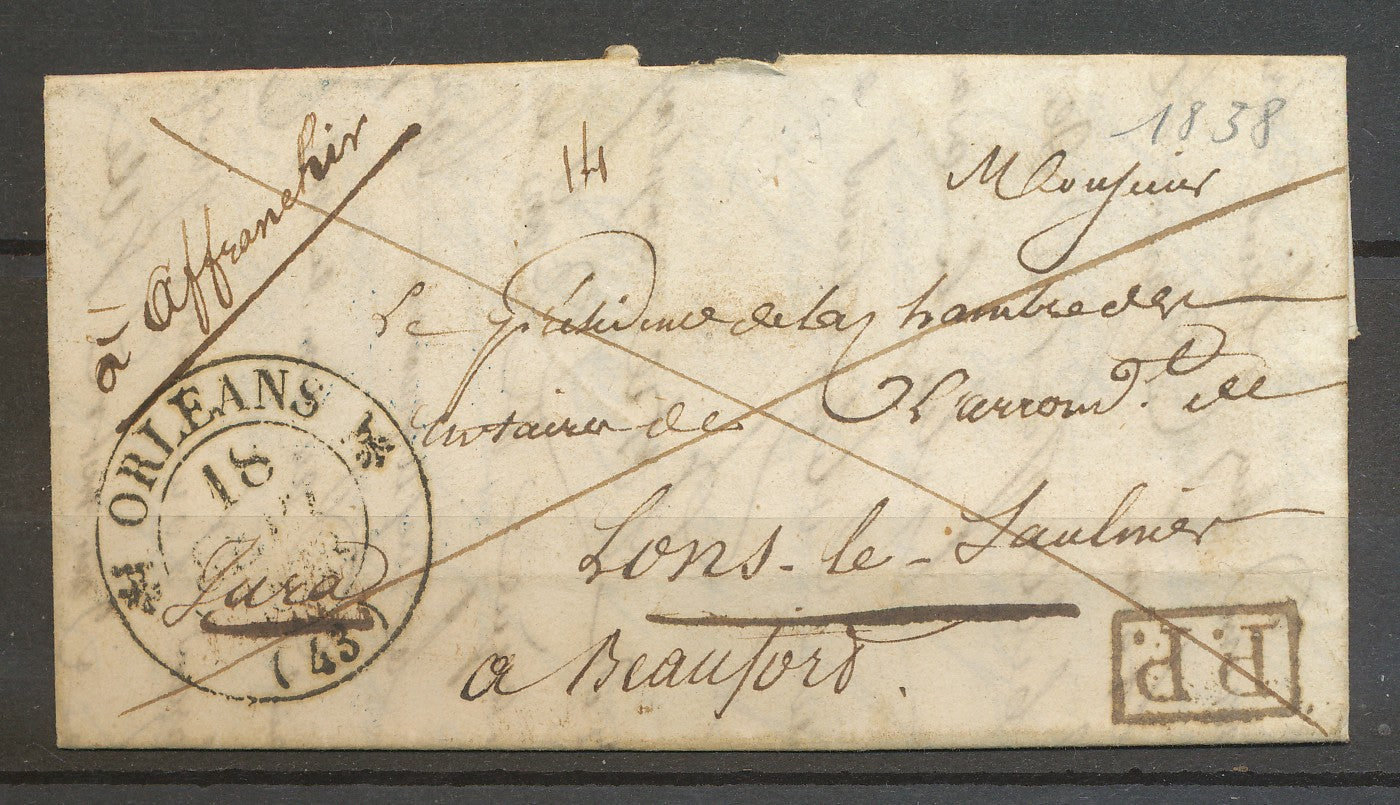 1838
à affranchir
14
Monsieur
Le Président de la chambre des
notaires de L'arrond.t de
Lons-le-Saulnier
a Beaufort.
Jura
ORLEANS
18
(43)
P.P.